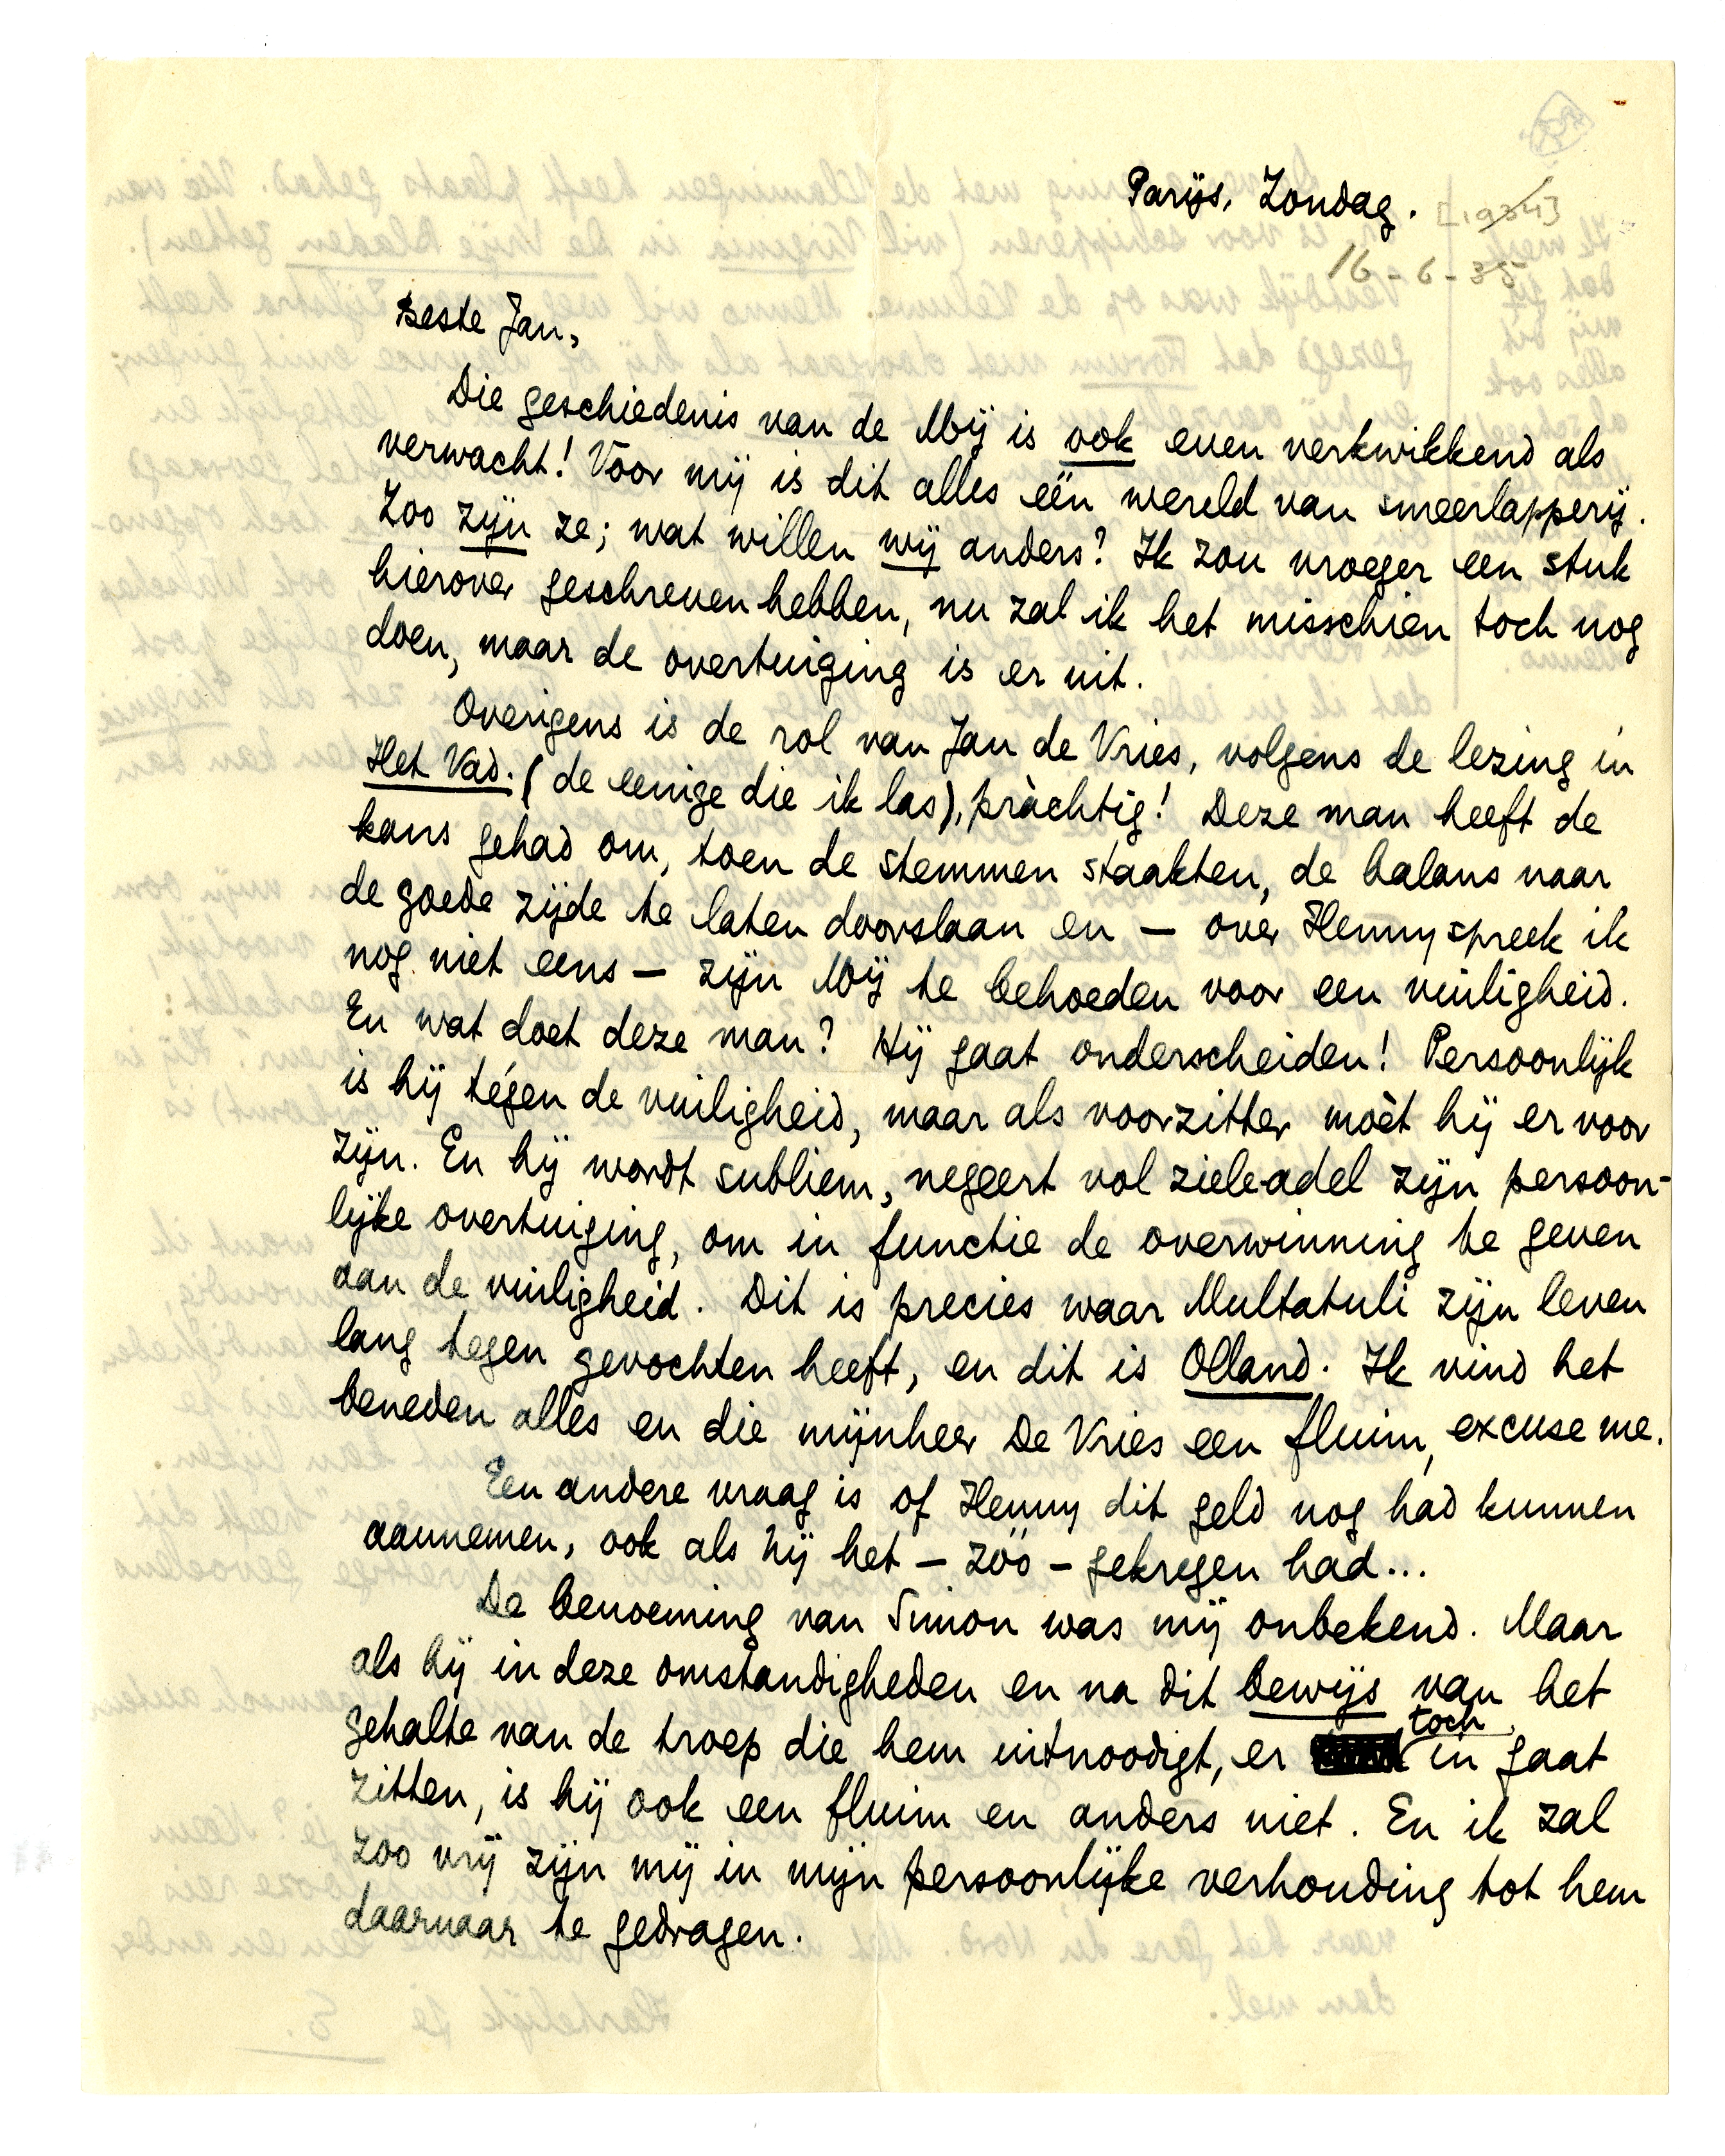 Parijs, Zondag.
[1934]
16-6-35
Beste Jan,
Die geschiedenis van de Mij is ook even verkwikkend als
verwacht! Voor mij is dit alles één wereld van smeerlapperij.
Zoo zijn ze; wat willen wij anders? Ik zou vroeger een stuk
hierover geschreven hebben, nu zal ik het misschien toch nog
doen, maar de overtuiging is er uit.
Overigens is de rol van Jan de Vries, volgens de lezing in
Het Vad. (de eenige die ik las), pràchtig! Deze man heeft de
kans gehad om, toen de stemmen staakten, de balans naar
de goede zijde te laten doorslaan en — over Henny spreek ik
nog niet eens — zijn Mij te behoeden voor een vuiligheid.
En wat doet deze man? Hij gaat onderscheiden! Persoonlijk
is hij tégen de vuiligheid, maar als voorzitter moèt hij er voor
zijn. En hij wordt subliem, negeert vol ziele-adel zijn persoon-
lijke overtuiging, om in functie de overwinning te geven
aan de vuiligheid. Dit is precies waar Multatuli zijn leven
lang tegen gevochten heeft, en dit is Olland. Ik vind het
beneden alles en die mijnheer De Vries een fluim, excuse me.
Een andere vraag is of Henny dit geld nog had kunnen
aannemen, ook als hij het — zóó — gekregen had...
De benoeming van Simon was mij onbekend. Maar
als hij in deze omstandigheden en na dit bewijs van het
gehalte van de troep die hem uitnoodigt, er toch in gaat
zitten, is hij ook een fluim en anders niet. En ik zal
zoo vrij zijn mij in mijn persoonlijke verhouding tot hem
daarnaar te gedragen.